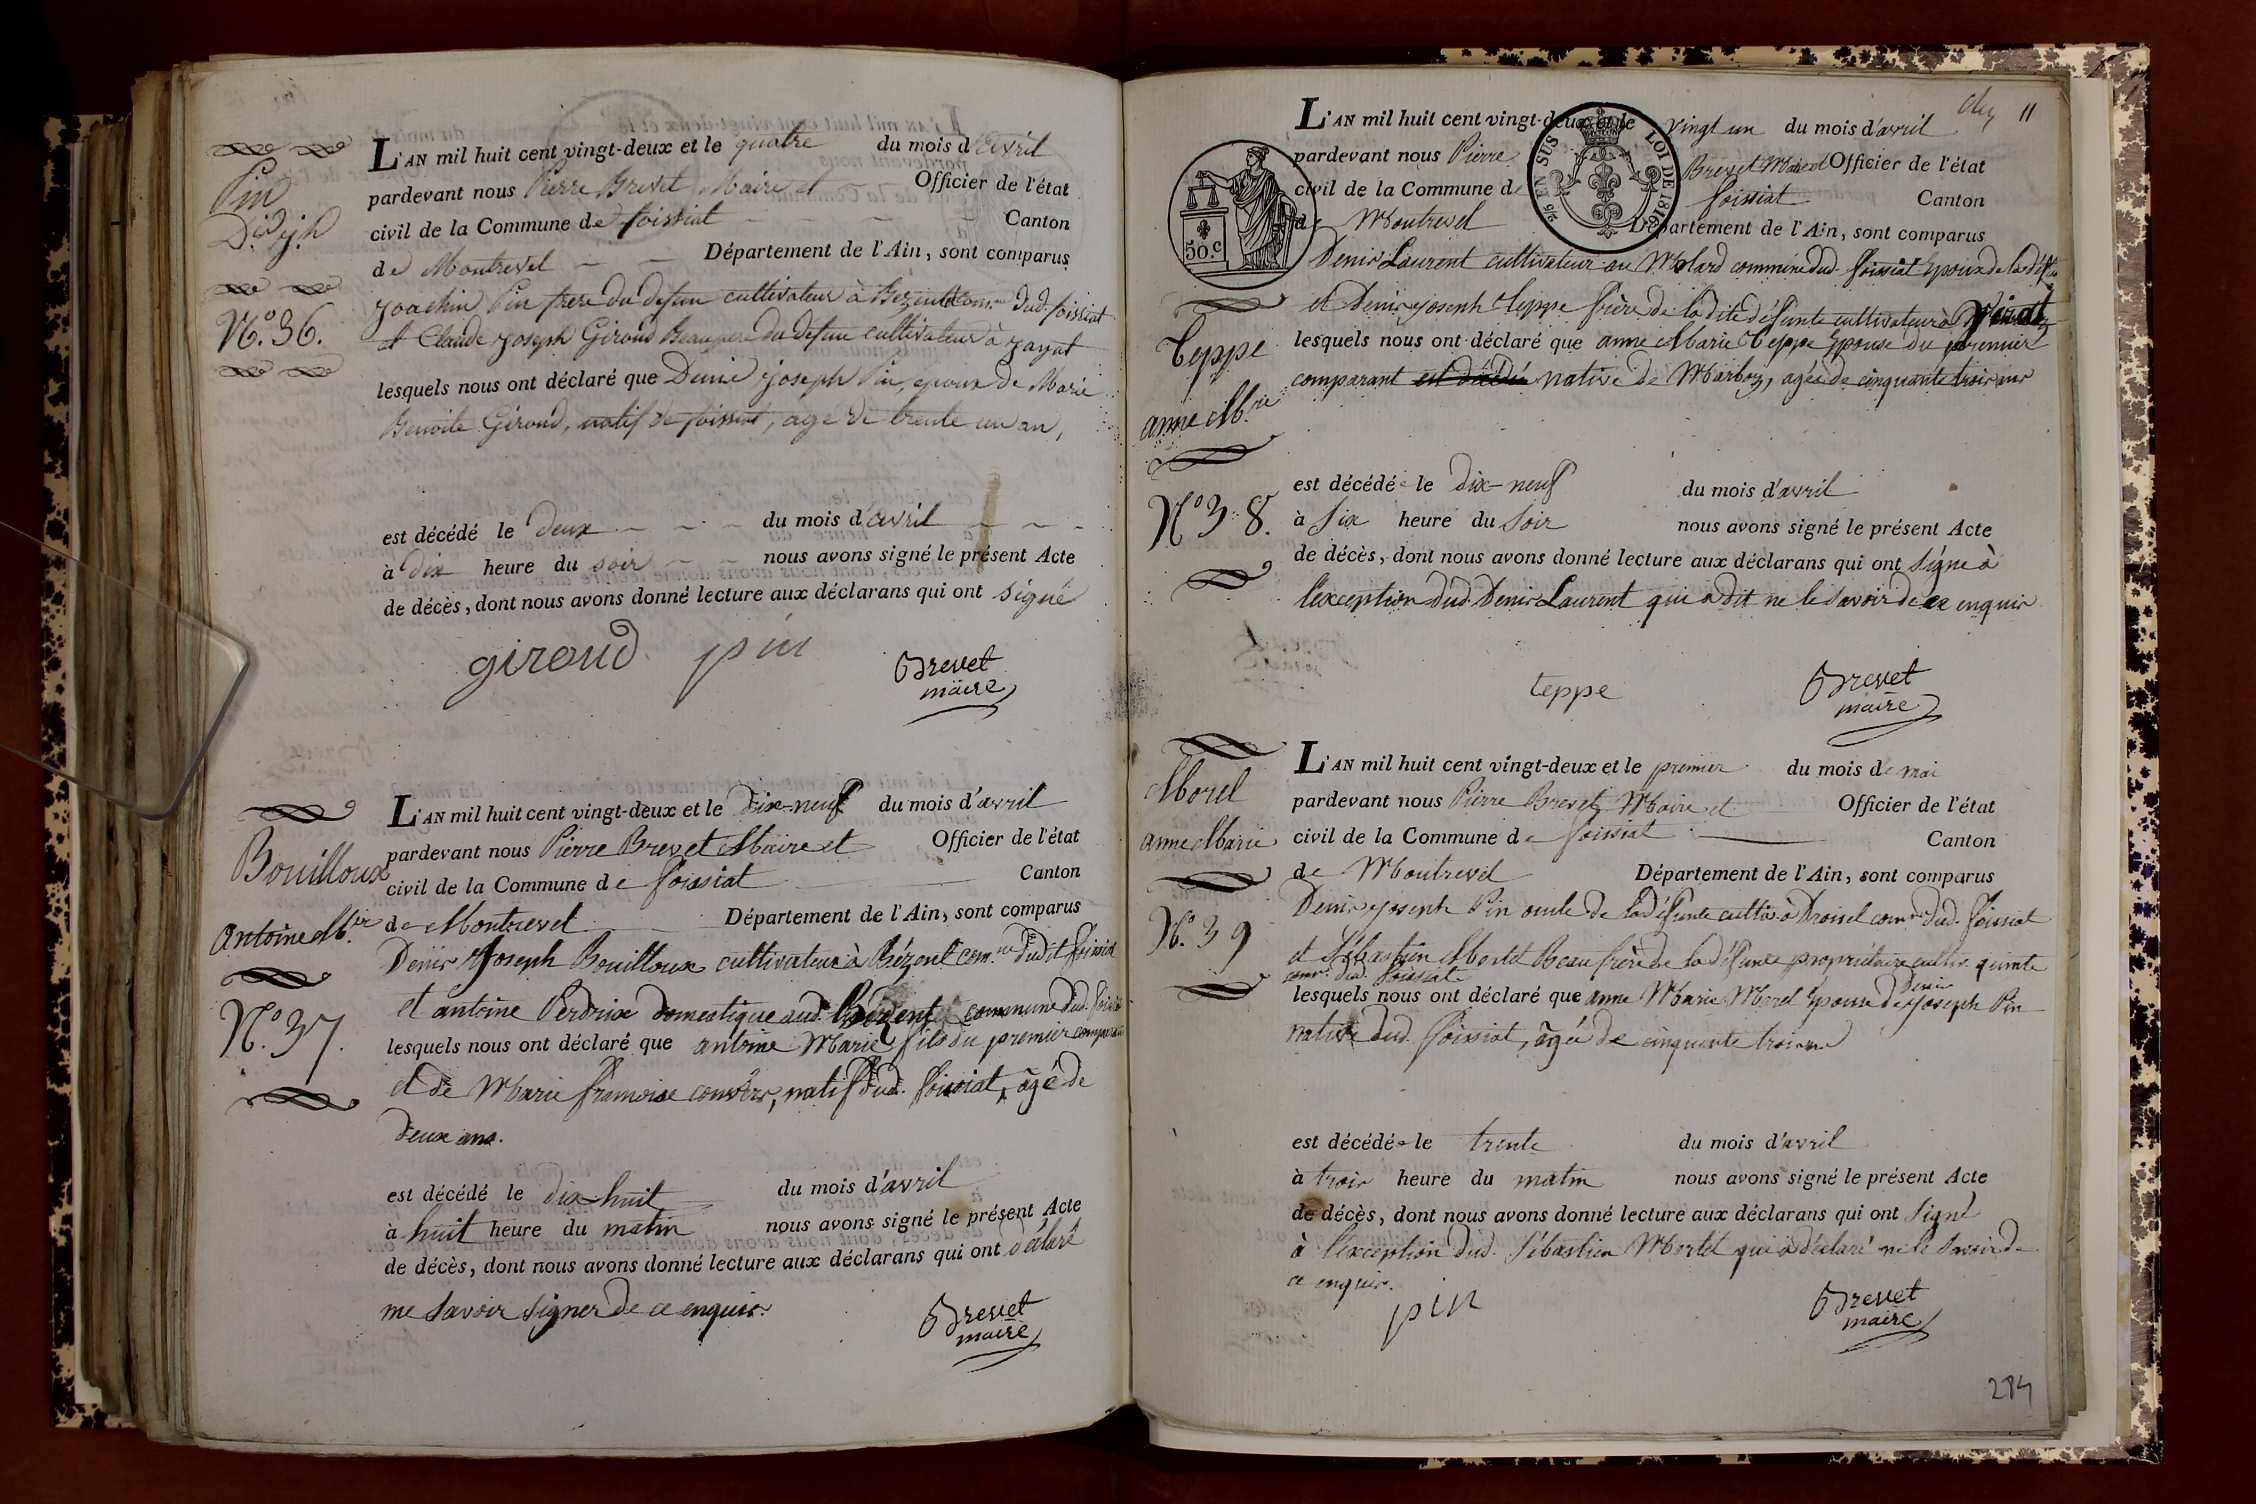 Pin
D.is j.h
N.o 36.
L'AN mil huit cent vingt-deux et le quatre du mois d'avril
pardevant nous Pierre Brevet Maire et Officier de l'état
civil de la Commune de foissiat Canton
de Montrevel Département de l'Ain, sont comparus
Joachim Pin frere du defun cultivateur à Bezent com.ne dud. foissiat
et Claude Joseph Giroud Beaupere du defun cultivateur à Jayat
lesquels nous ont déclaré que Denis Joseph Pin, epoux de Marie
Benoite Giroud, natif de foissiat, age de trente un an,
est décédé le deux du mois d'avril
à dix heure du soir nous avons signé le présent Acte
de décès, dont nous avons donné lecture aux déclarans qui ont signé
giroud pin Brevet
maire
Bouilloux
antoine M.ie
N.o 37.
L'AN mil huit cent vingt-deux et le Dix-neuf du mois d'avril
pardevant nous Pierre Brevet Maire et Officier de l'état
civil de la Commune de foissiat Canton
de Montrevel Département de l'Ain, sont comparus
Denis Joseph Bouilloux cultivateur à Bézent com.ne dudit foissiat
et antoine Perdrix domestique aud. Bezent commune dud. foissiat
lesquels nous ont déclaré que antoine Marie fils du premier comparant
et de Marie françoise convers, natif dud. foissiat, âgé de
deux ans.
est décédé le dix-huit du mois d'avril
à huit heure du matin nous avons signé le présent Acte
de décès, dont nous avons donné lecture aux déclarans qui ont déclaré
ne savoir signer de ce enquis.
Brevet
maire
11
50.c
EN SUS LOI DE 1816
Teppe
anne M.rie
N.o 38.
L'AN mil huit cent vingt-deux et le vingt un du mois d'avril
pardevant nous Pierre Brevet Maire et Officier de l'état
civil de la Commune de foissiat Canton
de Montrevel Département de l'Ain, sont comparus
Denis Laurent cultivateur au Molard commune dud. foissiat Epoux de la défunte
et Denis Joseph Teppe frère de la dite défunte cultivateur à
lesquels nous ont déclaré que anne Marie Teppe Epouse du premier
comparant est décédée native de Marboz, agée de cinquante trois ans
est décédée le dix-neuf du mois d'avril
à six heure du soir nous avons signé le présent Acte
de décès, dont nous avons donné lecture aux déclarans qui ont signé à
l'exception dud. Denis Laurent qui a dit ne le savoir de ce enquis
teppe Brevet
maire
Morel
anne Marie
N.o 39
L'AN mil huit cent vingt-deux et le premier du mois de mai
pardevant nous Pierre Brevet Maire et Officier de l'état
civil de la Commune de foissiat Canton
de Montrevel Département de l'Ain, sont comparus
Denis Joseph Pin oncle de la défunte cultiv. à com.ne dud. foissiat
et Sébastien Mortel Beau frère de la défunte propriétaire cultiv.
com.ne dud. foissiat
lesquels nous ont déclaré que anne Marie Morel Epouse de Denis Joseph Pin
native dud. foissiat, âgée de cinquante trois ans
est décédée le trente du mois d'avril
à trois heure du matin nous avons signé le présent Acte
de décès, dont nous avons donné lecture aux déclarans qui ont signé
à l'exception dud. Sébastien Mortel qui a déclaré ne le savoir de
ce enquis.
pin Brevet
maire
284